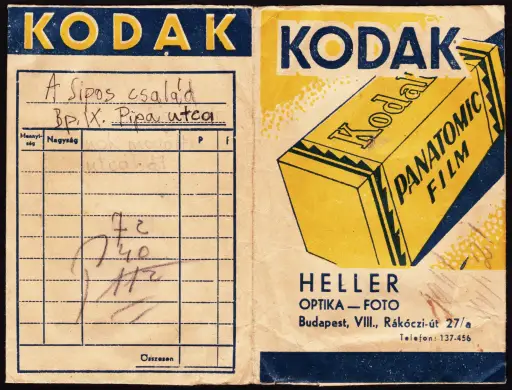 KODAK
A Sipos család
Bp. IX. Pipa utca
Mennyi-
ség Nagyság P f
72
40
112
Összesen
KODAK
Kodak
PANATOMIC
FILM
HELLER
OPTIKA — FOTO
Budapest, VIII., Rákóczi-út 27/a
Telefon: 137-456